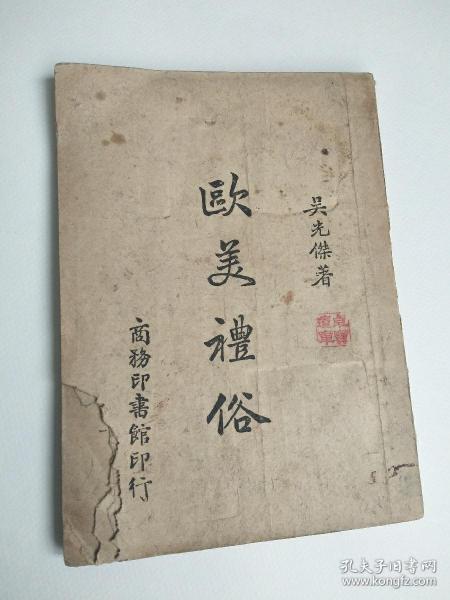 吴光傑著
歐美禮俗
商務印書館印行
孔夫子旧书网
www.kongfz.com